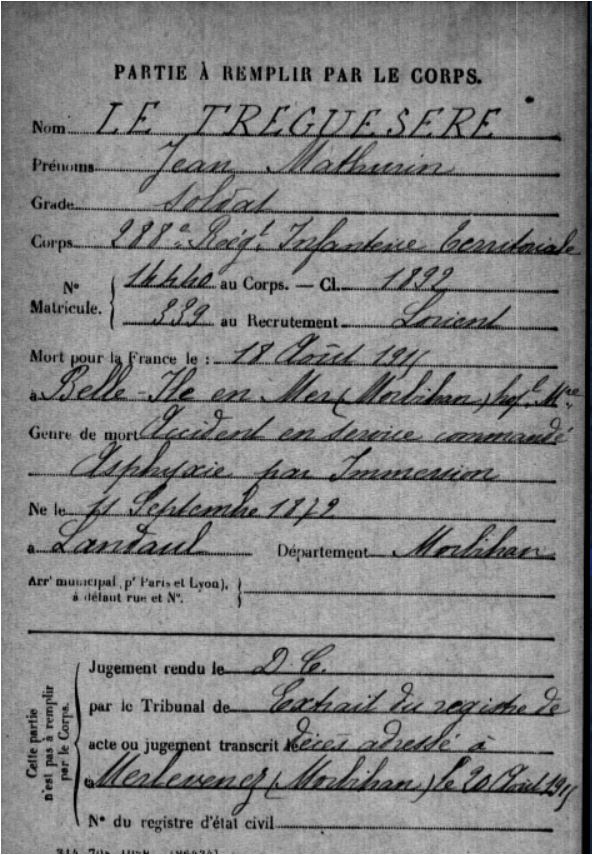 PARTIE À REMPLIR PAR LE CORPS.
Nom LE TREGUESERE
Prénoms Jean Mathurin
Grade Soldat
Corps 288e Régt Infanterie Territoriale
No Matricule. 14440 au Corps. — Cl. 1892
339 au Recrutement Lorient
Mort pour la France le : 18 Août 1915
à Belle-Ile en Mer (Morbihan) hopl Mre
Genre de mort Accident en service commandé
Asphyxie par Immersion
Né le 11 Septembre 1872
à Landaul Département Morbihan
Arrt municipal (pr Paris et Lyon), à défaut rue et No.
Cette partie n'est pas à remplir par le Corps.
Jugement rendu le D. C.
par le Tribunal de Extrait du registre de
acte ou jugement transcrit décès adressé à
à Merlevenez (Morbihan) le 20 Août 1915
No du registre d'état civil